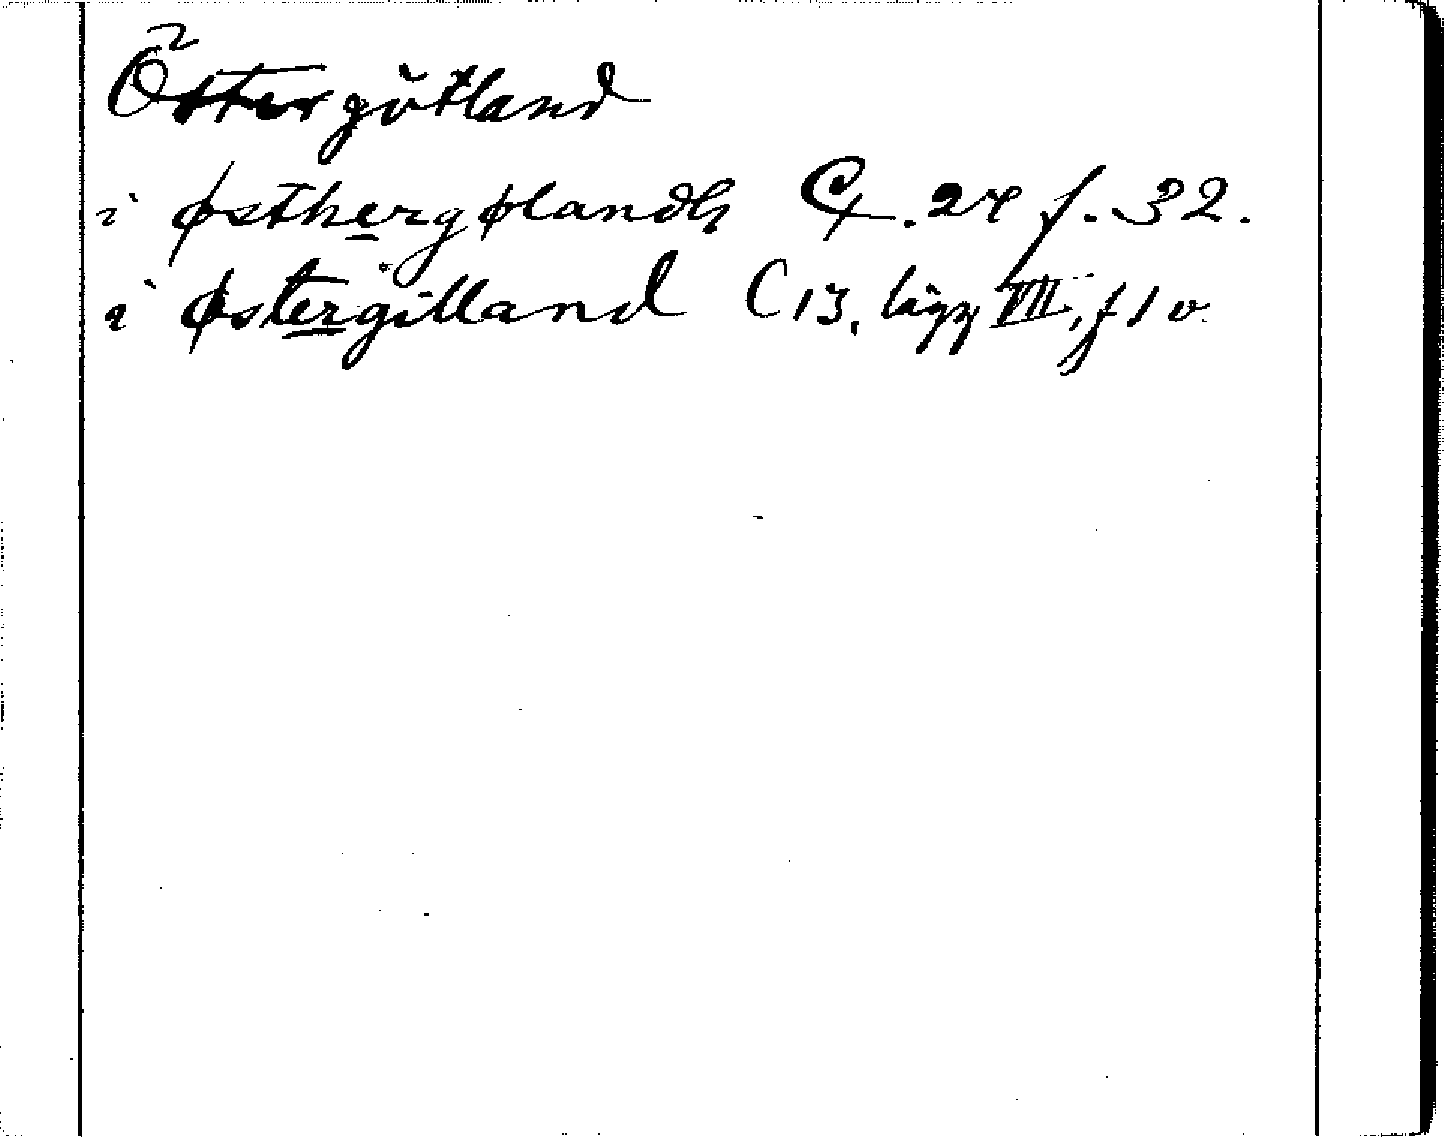 Östergötland
i østhergølandh C. 24 f. 32.
i østergilland C 13, lägg VII, f 1 v.